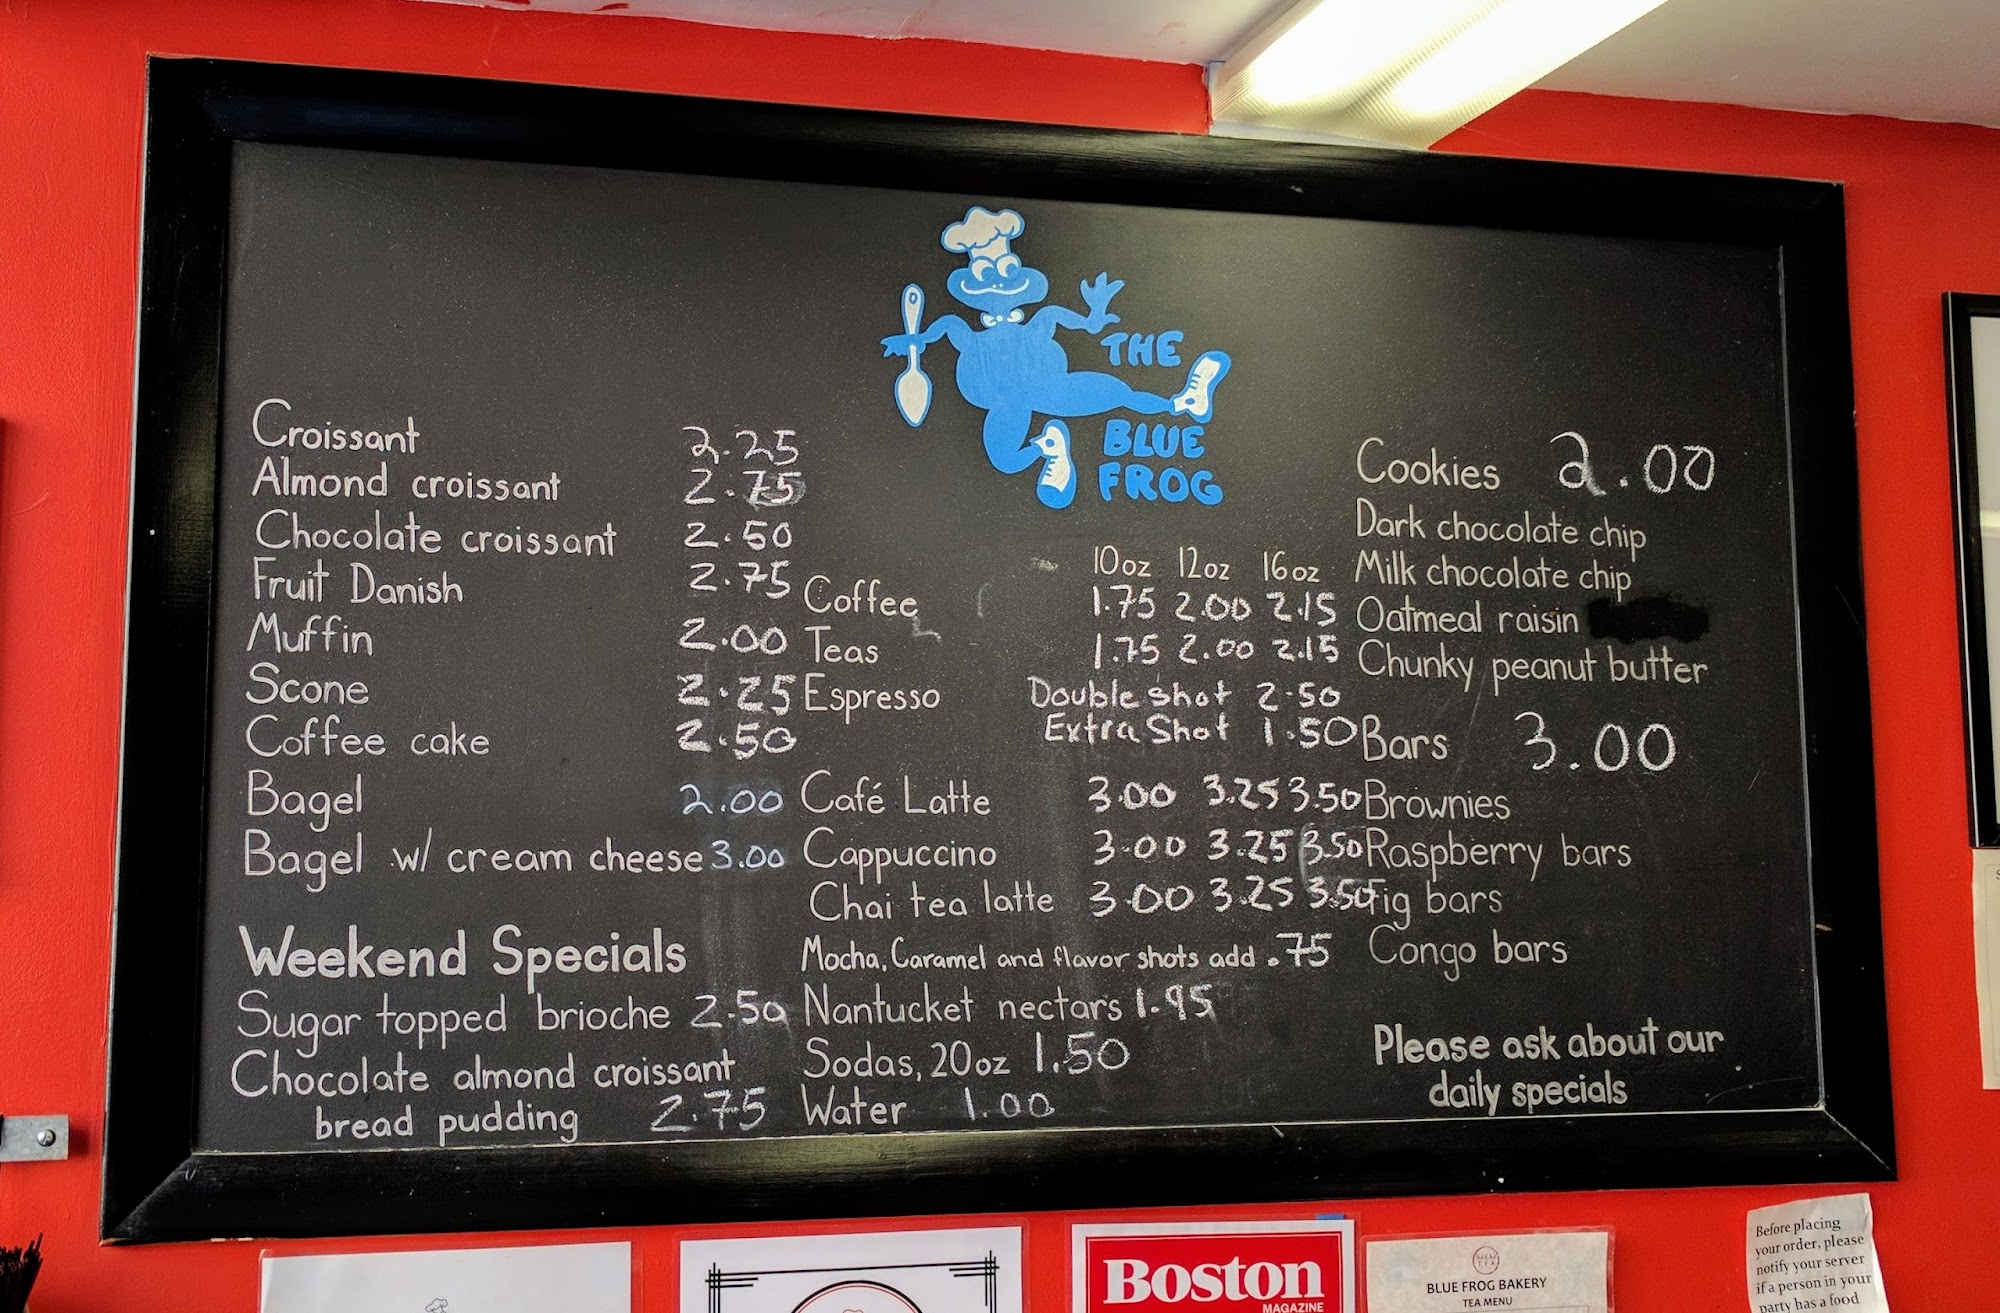 THE
BLUE
FROG
Croissant 2.25
Almond croissant 2.75
Chocolate croissant 2.50
Fruit Danish 2.75
Muffin 2.00
Scone 2.25
Coffee cake 2.50
Bagel 2.00
Bagel w/ cream cheese 3.00
Weekend Specials
Sugar topped brioche 2.50
Chocolate almond croissant
bread pudding 2.75
10oz 12oz 16oz
Coffee 1.75 2.00 2.15
Teas 1.75 2.00 2.15
Espresso Double shot 2.50
Extra Shot 1.50
Café Latte 3.00 3.25 3.50
Cappuccino 3.00 3.25 3.50
Chai tea latte 3.00 3.25 3.50
Mocha, Caramel and flavor shots add .75
Nantucket nectars 1.95
Sodas, 20oz 1.50
Water 1.00
Cookies 2.00
Dark chocolate chip
Milk chocolate chip
Oatmeal raisin
Chunky peanut butter
Bars 3.00
Brownies
Raspberry bars
Fig bars
Congo bars
Please ask about our
daily specials
Boston
MAGAZINE
BLUE FROG BAKERY
TEA MENU
Before placing
your order, please
notify your server
if a person in your
party has a food